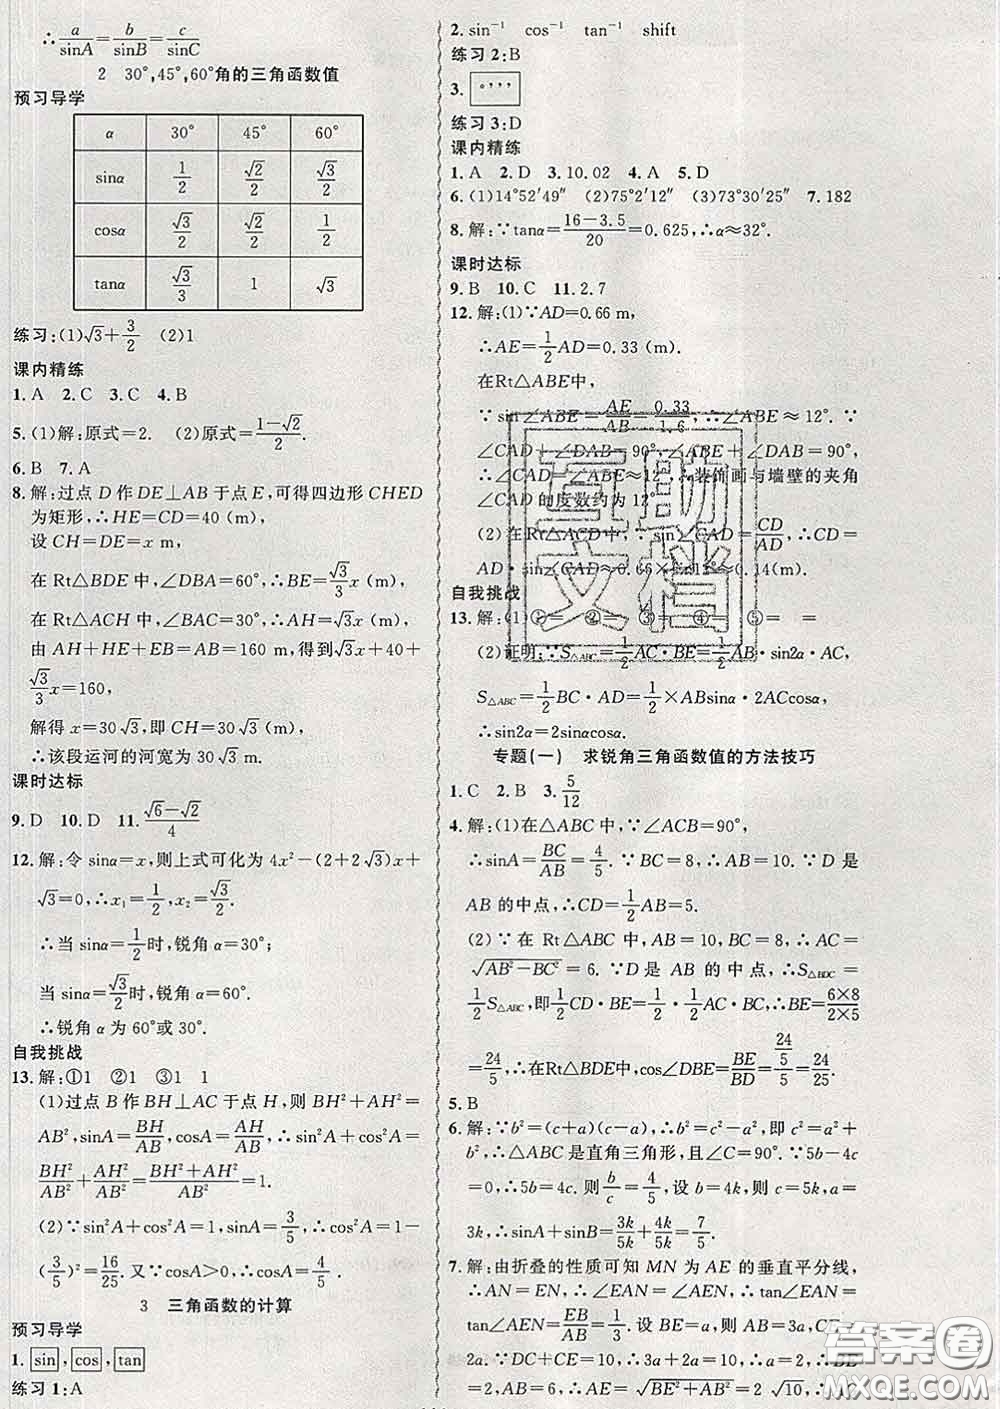 ∴a/sinA=b/sinB=c/sinC
2 30°,45°,60°角的三角函数值
预习导学
α 30° 45° 60°
sinα 1/2 √2/2 √3/2
cosα √3/2 √2/2 1/2
tanα √3/3 1 √3
练习:(1)√3+3/2 (2)1
课内精练
1. A 2. C 3. C 4. B
5. (1)解:原式=2. (2)原式=(1-√2)/2.
6. B 7. A
8. 解:过点 D 作 DE⊥AB 于点 E,可得四边形 CHED
为矩形,∴HE=CD=40 (m),
设 CH=DE=x m,
在 Rt△BDE 中,∠DBA=60°,∴BE=√3/3 x (m),
在 Rt△ACH 中,∠BAC=30°,∴AH=√3x (m),
由 AH+HE+EB=AB=160 m,得到√3x+40+
√3/3 x=160,
解得 x=30√3,即 CH=30√3 (m),
∴该段运河的河宽为 30√3 m.
课时达标
9. D 10. D 11. (√6-√2)/4
12. 解:令 sinα=x,则上式可化为 4x²-(2+2√3)x+
√3=0,∴x₁=1/2,x₂=√3/2.
∴当 sinα=1/2时,锐角 α=30°;
当 sinα=√3/2时,锐角 α=60°.
∴锐角 α 为 60°或 30°.
自我挑战
13. 解:①1 ②1 ③1 1
(1)过点 B 作 BH⊥AC 于点 H,则 BH²+AH²=
AB²,sinA=BH/AB,cosA=AH/AB,∴sin²A+cos²A=
BH²/AB²+AH²/AB²=(BH²+AH²)/AB²=1.
(2)∵sin²A+cos²A=1,sinA=3/5,∴cos²A=1-
(3/5)²=16/25.又∵cosA>0,∴cosA=4/5.
3 三角函数的计算
预习导学
1. sin,cos,tan
练习 1:A
2. sin⁻¹ cos⁻¹ tan⁻¹ shift
练习 2:B
3. °’”
练习 3:D
课内精练
1. A 2. D 3. 10.02 4. A 5. D
6. (1)14°52′49″ (2)75°2′12″ (3)73°30′25″ 7. 182
8. 解:∵tanα=(16-3.5)/20=0.625,∴α≈32°.
课时达标
9. B 10. C 11. 2.7
12. 解:(1)∵AD=0.66 m,
∴AE=1/2AD=0.33 (m).
在Rt△ABE中,
∵sin∠ABE=AE/AB=0.33/1.6,∴∠ABE≈12°.∵
∠CAD+∠DAB=90°,∠ABE+∠DAB=90°,
∴∠CAD=∠ABE≈12°.∴装饰画与墙壁的夹角
∠CAD的度数约为 12°.
(2)在 Rt△ACD 中,∵sin∠CAD=CD/AD,∴CD=
AD·sin∠CAD≈0.66×sin12°≈0.14(m).
自我挑战
13. 解:(1)①= ②= ③= ④= ⑤=
(2)证明:∵S△ABC=1/2AC·BE=1/2AB·sin2α·AC,
S△ABC=1/2BC·AD=1/2×ABsinα·2ACcosα,
∴sin2α=2sinαcosα.
专题(一) 求锐角三角函数值的方法技巧
1. C 2. B 3. 5/12
4. 解:(1)在△ABC 中,∵∠ACB=90°,
∴sinA=BC/AB=4/5.∵BC=8,∴AB=10.∵D 是
AB 的中点,∴CD=1/2AB=5.
(2)∵在 Rt△ABC 中,AB=10,BC=8,∴AC=
√(AB²-BC²)=6.∵D 是 AB 的中点,∴S△BDC=
1/2S△ABC,即1/2CD·BE=1/2×1/2AC·BC,∴BE=(6×8)/(2×5)
=24/5,∴在Rt△BDE中,cos∠DBE=BE/BD=(24/5)/5=24/25.
5. B
6. 解:∵b²=(c+a)(c-a),∴b²=c²-a²,即 c²=a²+
b²,∴△ABC是直角三角形,且∠C=90°.∵5b-4c
=0,∴5b=4c.则b/c=4/5,设 b=4k,则 c=5k,a=
3k,∴sinA+sinB=3k/5k+4k/5k=7/5.
7. 解:由折叠的性质可知 MN 为 AE 的垂直平分线,
∴AN=EN,∴∠EAN=∠AEN,∴tan∠AEN=
tan∠EAN=EB/AB=1/3.∴设 BE=a,AB=3a,则 CE=
2a.∵DC+CE=10,∴3a+2a=10,∴a=2,∴BE
=2,AB=6,∴AE=√(BE²+AB²)=2√10,∴AM
互助文档
答案圈
MXQE.COM